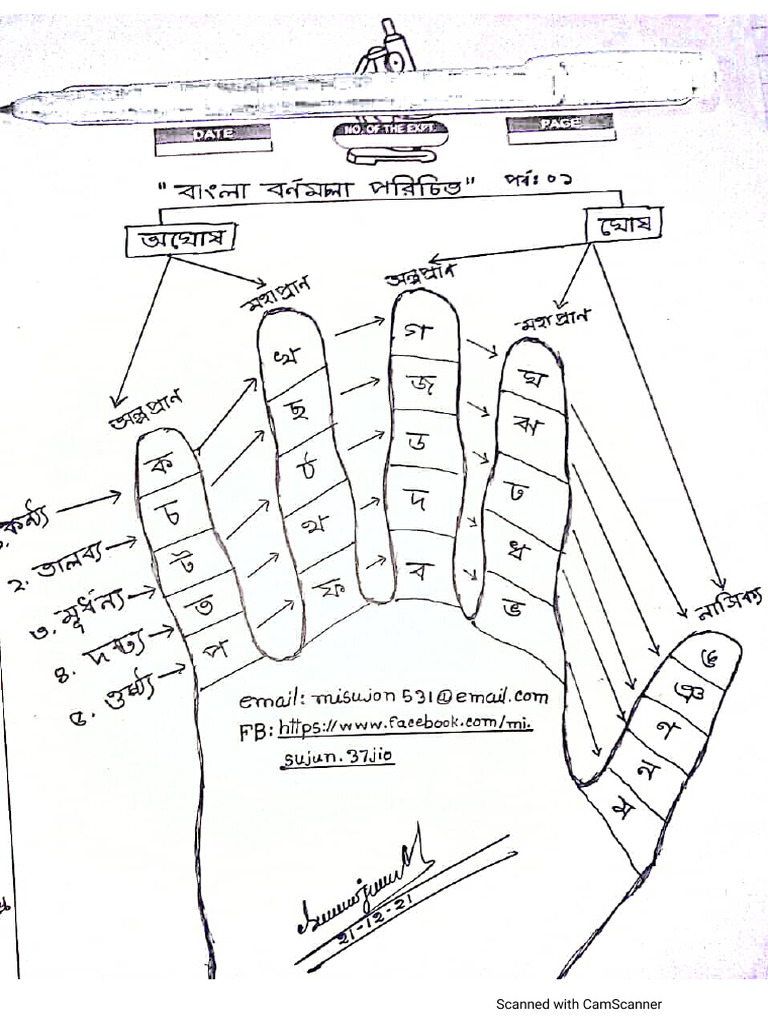 DATE
NO. OF THE EXPT.
PAGE
"বাংলা বর্নমালা পরিচিতি" পর্ব: ০১
অঘোষ
ঘোষ
অল্পপ্রান
মহাপ্রান
অল্পপ্রান
মহাপ্রান
নাসিক্য
ক খ গ ঘ ঙ
চ ছ জ ঝ ঞ
ট ঠ ড ঢ ণ
ত থ দ ধ ন
প ফ ব ভ ম
কন্ঠ্য
২. তালব্য
৩. মূর্ধন্য
৪. দন্ত্য
৫. ওষ্ঠ্য
email: misujon531@email.com
FB: https://www.facebook.com/mi.
sujun.37jio
21-12-21
Scanned with CamScanner